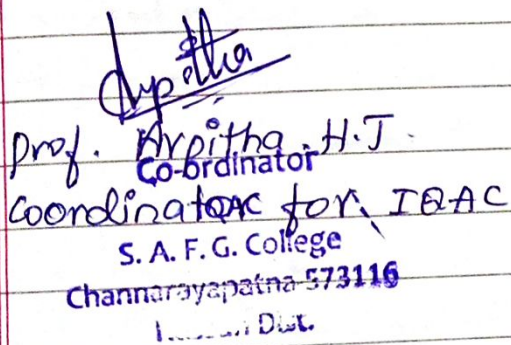 Arpitha
Prof. Arpitha. H.J.
Co-ordinator
Coordinator for IQAC
S. A. F. G. College
Channarayapatna-573116
Dist.